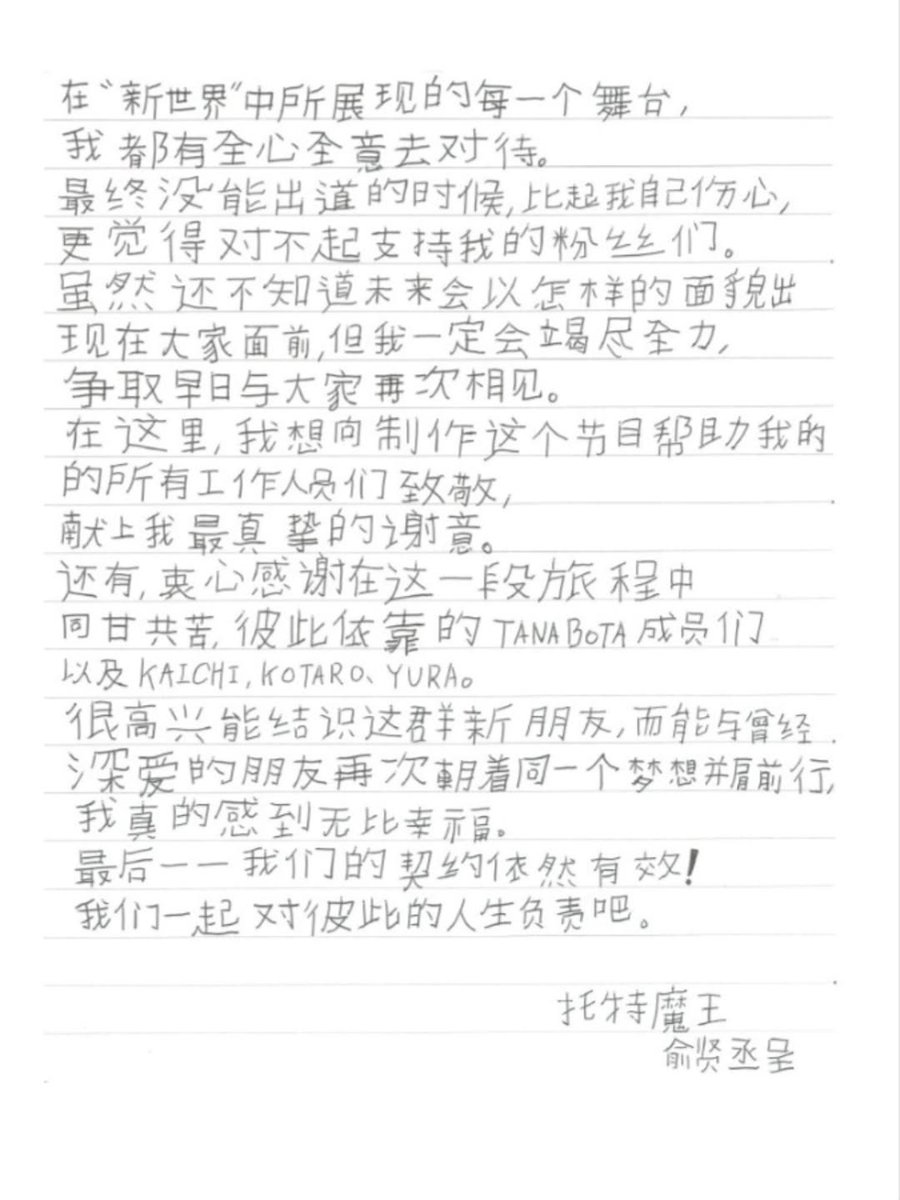 在“新世界”中所展现的每一个舞台,
我都有全心全意去对待。
最终没能出道的时候,比起我自己伤心,
更觉得对不起支持我的粉丝们。
虽然还不知道未来会以怎样的面貌出
现在大家面前,但我一定会竭尽全力,
争取早日与大家再次相见。
在这里,我想向制作这个节目帮助我的
的所有工作人员们致敬,
献上我最真挚的谢意。
还有,衷心感谢在这一段旅程中
同甘共苦,彼此依靠的TANABOTA成员们
以及KAICHI,KOTARO、YURA。
很高兴能结识这群新朋友,而能与曾经
深爱的朋友再次朝着同一个梦想并肩前行,
我真的感到无比幸福。
最后——我们的契约依然有效!
我们一起对彼此的人生负责吧。
托特魔王
俞贤丞呈